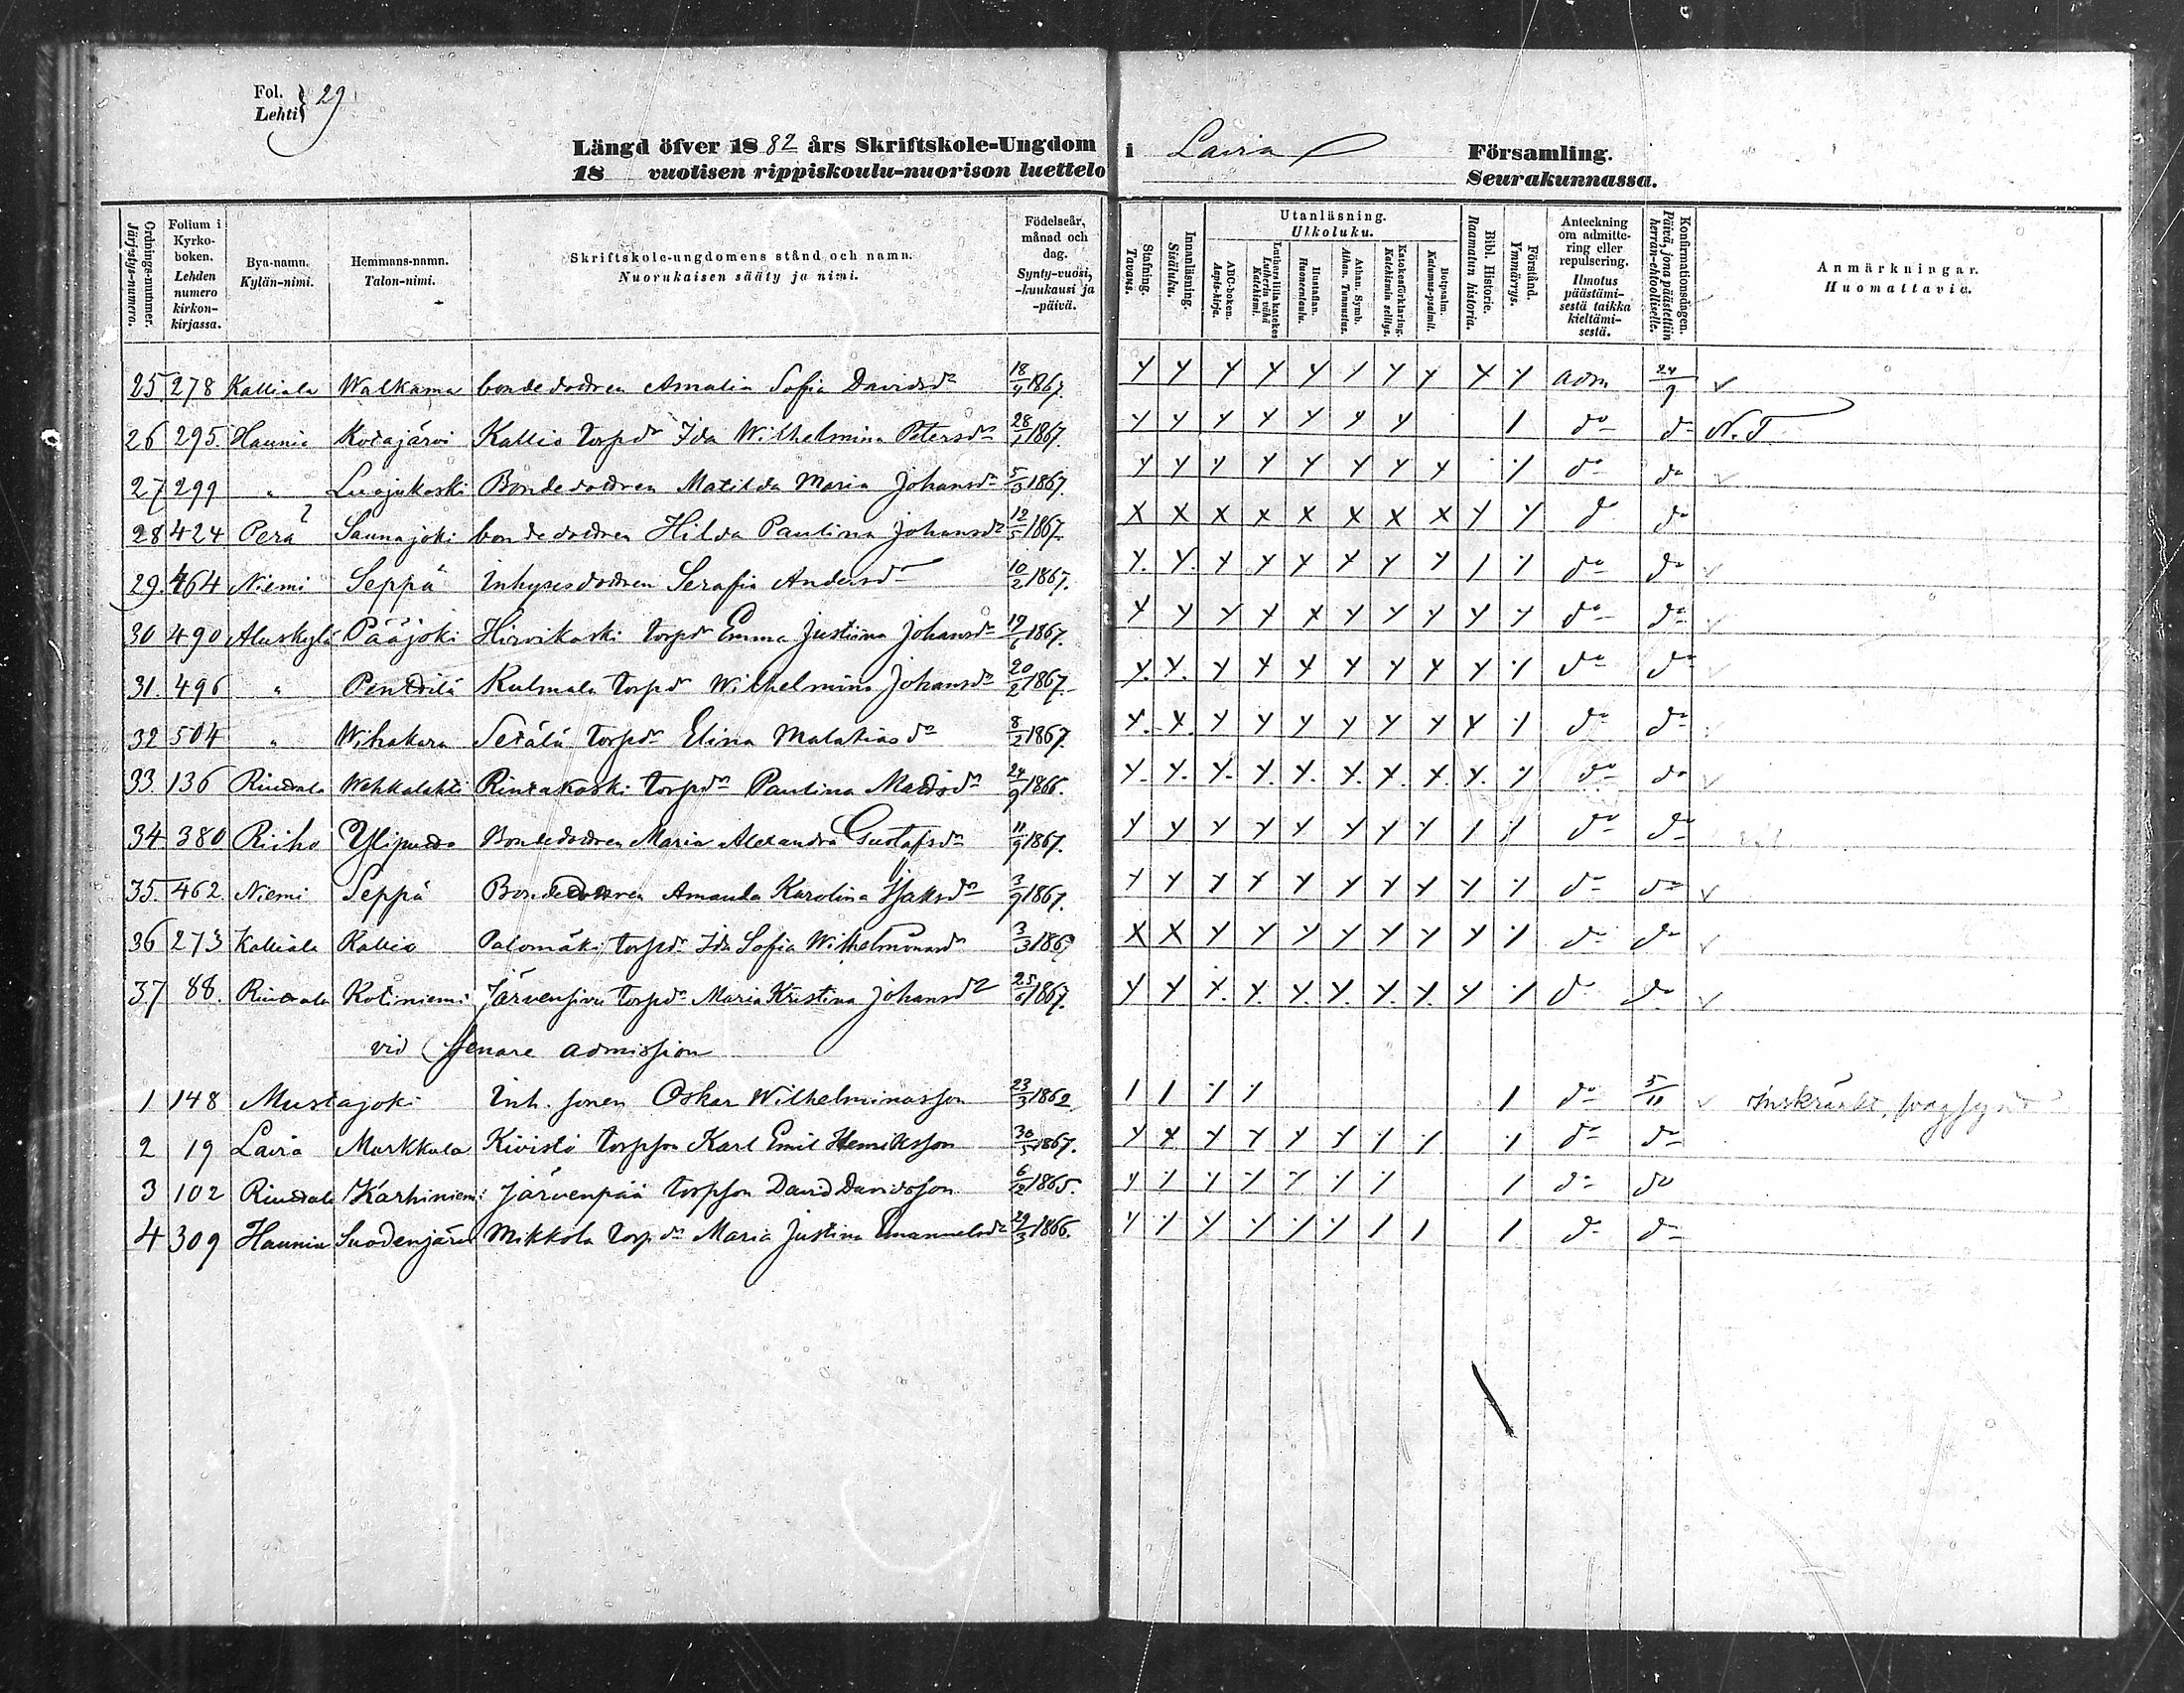 Fol. } 29
Lehti
Längd öfver 1882 års Skriftskole-Ungdom i Lavia Församling.
18 vuotisen rippiskoulu-nuorison luettelo Seurakunnassa.
Ordnings-nummer. Järjestys-numero.
Folium i Kyrko-boken. Lehden numero kirkon-kirjassa.
Bya-namn. Kylän-nimi.
Hemmans-namn. Talon-nimi.
Skriftskole-ungdomens stånd och namn. Nuorukaisen sääty ja nimi.
Födelseår, månad och dag. Synty-vuosi, -kuukausi ja -päivä.
Stafning. Tavaus.
Innanläsning. Sisäluku.
Utanläsning. Ulkoluku.
ABC-boken. Aapis-kirja.
Luthers lilla katekes Lutherin vähä Katekismi.
Hustaflan. Huoneentaulu.
Athan. Symb. Athan. Tunnustus.
Katekesförklaring. Katekismin selitys.
Botpsalm. Katumus-psalmit.
Bibl. Historie. Raamatun historia.
Förstånd. Ymmärrys.
Anteckning om admitte-ring eller repulsering. Ilmotus päästämi-sestä taikka kieltämi-sestä.
Konfirmationsdagen. Päivä, jona päästettiin herran-ehtoolliselle.
Anmärkningar. Huomattavia.
25 278 Kalliala Walkama bondedottren Amalia Sofia Davidsdr 1867. adm 24/9
26 295. Haunia Kotajärvi Kallio torpdr Ida Wilhelmina Petersdr 28/1 1867. do do N.T.
27 299 " Luojukoski Bondedottren Matilda Maria Johansdr 1867. do do
28 424 Perä Saunajoki bondedottren Hilda Paulina Johansdr 12/5 1867. do do
29. 464 Niemi Seppä Inhysesdottren Serafia Andersdr 10/2 1867. do do
30 490 Aluskylä Pääjoki Hirvikoski torpdr Emma Justiina Johansdr 19/6 1867. do do
31. 496 " Penttilä Kulmala torpdr Wilhelmina Johansdr 20/2 1867. do do
32 504 " Wihakara Setälä torpdr Elina Malakiasdr 8/2 1867. do do
33. 136 Riuttala Wehkalahti Rintakoski torpdr Paulina Mattsdr 24/9 1866. do do
34 380 Riiho Yliputto Bondedottren Maria Alexandra Gustafsdr 11/9 1867. do do
35. 462. Niemi Seppä Bondedottren Amanda Karolina Isaksdr 3/9 1867. do do
36 273 Kalliala Kallio Palomäki torpdr Ida Sofia Wilhelminasdr 3/3 do do
37 88. Riuttala Kotiniemi Järvensivu torpdr Maria Kristina Johansdr 25/6 1867. do do
vid senare admission
1 148 Mustajoki Inh. sonen Oskar Wilhelminasson 23/3 1862 do 5/11 Inskränkt, svagsynt
2 19 Lavia Markkula Kivistö torpson Karl Emil Henriksson 1867. do do
3 102 Riuttala Karhiniemi Järvenpää torpson David Davidsson 6/12 1865. do do
4 309 Haunia Suodenjärvi Mikkola torpdr Maria Justina Emanuelsdr 29/3 1866. do do